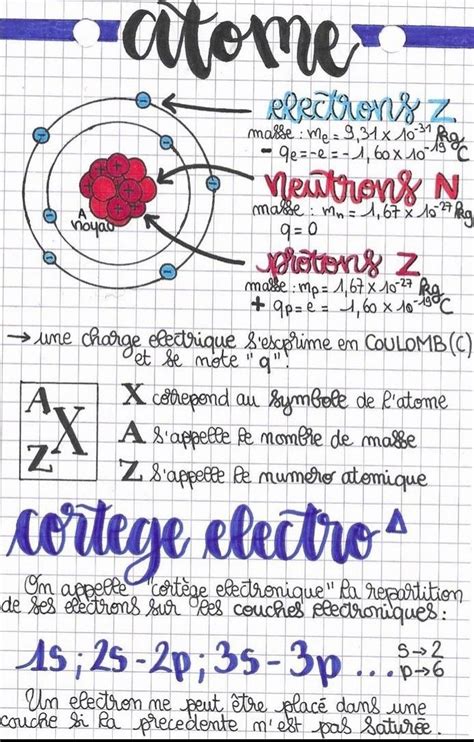 atome
électrons Z
masse : me = 9,31 x 10^-31 kg
- qe = -e = -1,60 x 10^-19 C
neutrons N
masse : mn = 1,67 x 10^-27 kg
q = 0
A
noyau
protons Z
masse : mp = 1,67 x 10^-27 kg
+ qp = e = 1,60 x 10^-19 C
→ une charge electrique s'esprime en COULOMB (C)
et se note "q".
A
Z X
X correpond au symbole de l'atome
A s'appelle le nombre de masse
Z s'appelle le numero atomique
cortege electro Δ
On appelle "cortège electronique" la repartition
de ses electrons sur les couches electroniques :
1s ; 2s - 2p ; 3s - 3p ...
s → 2
p → 6
Un electron ne peut être placé dans une
couche si la precedente n'est pas saturée.